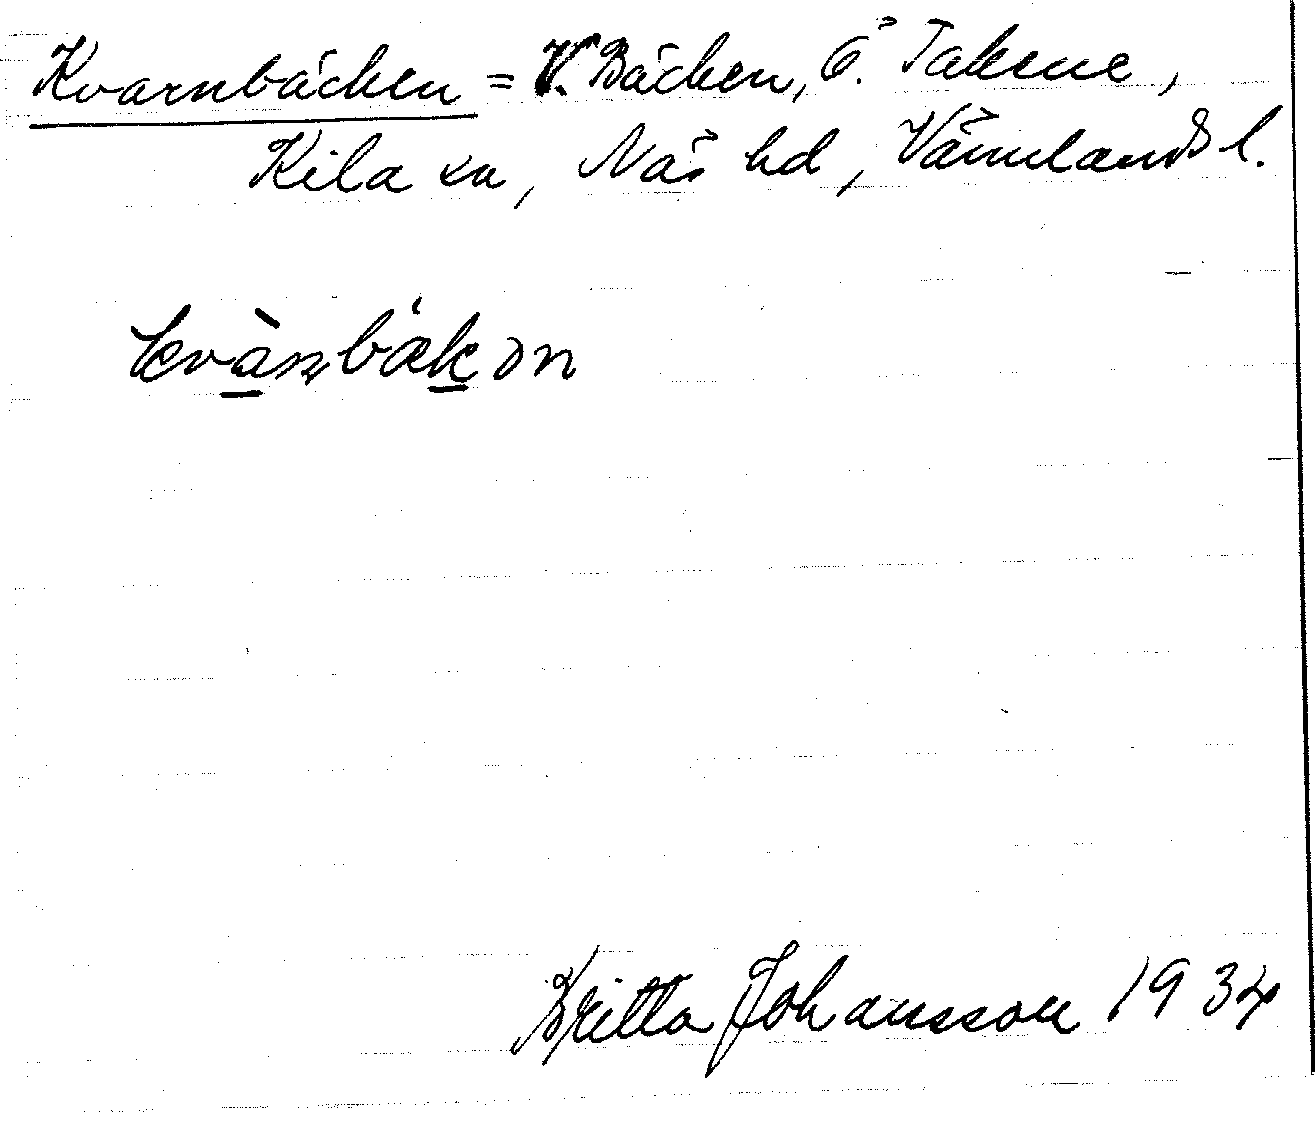 Kvarnbäcken = V. Bäcken, Ö. Takene,
Kila sn, Näs hd, Värmlands l.
kvànbækən
Britta Johansson 1934